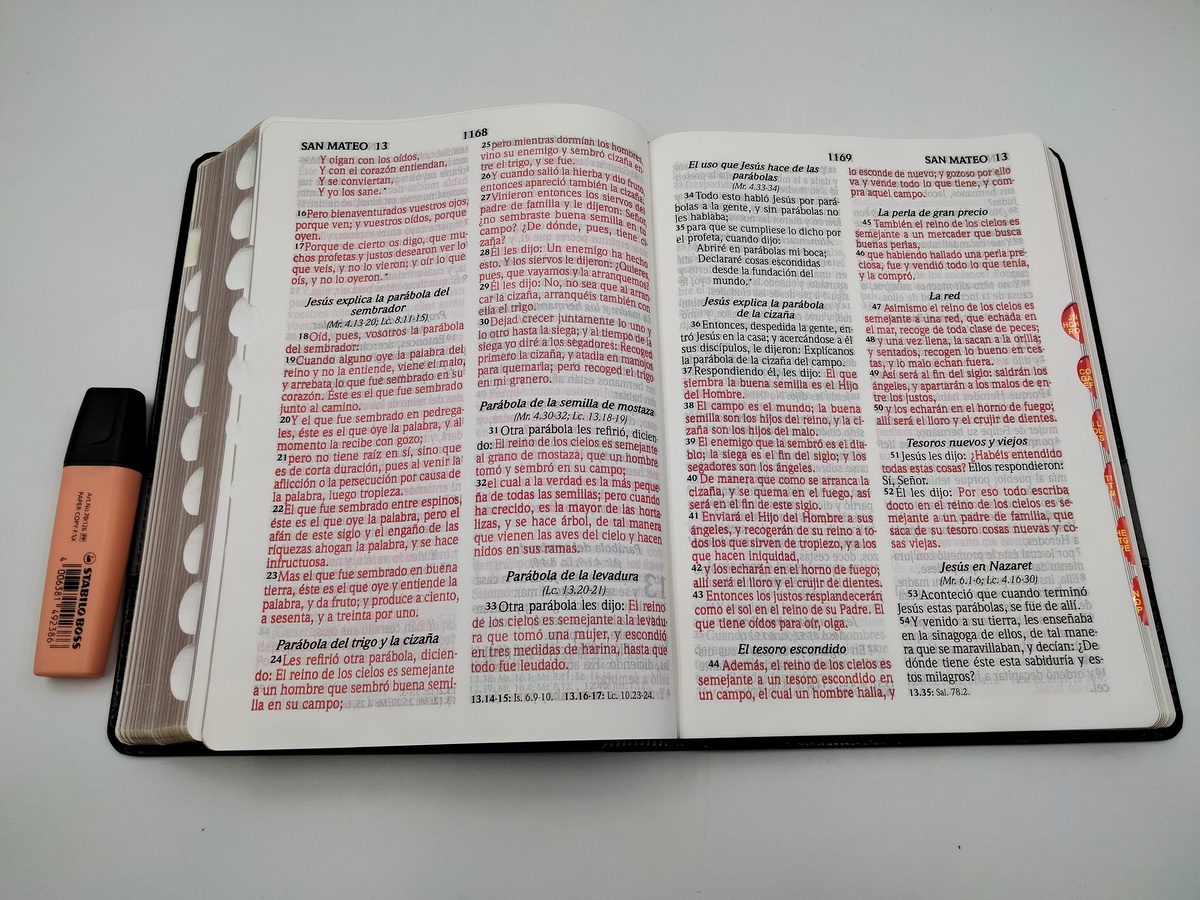 SAN MATEO 13
1168
Y oigan con los oídos,
Y con el corazón entiendan,
Y se conviertan,
Y yo los sane.*
16 Pero bienaventurados vuestros ojos,
porque ven; y vuestros oídos, porque
oyen.
17 Porque de cierto os digo, que mu-
chos profetas y justos desearon ver lo
que veis, y no lo vieron; y oír lo que
oís, y no lo oyeron.*
Jesús explica la parábola del
sembrador
(Mr. 4.13-20; Lc. 8.11-15)
18 Oíd, pues, vosotros la parábola
del sembrador:
19 Cuando alguno oye la palabra del
reino y no la entiende, viene el malo,
y arrebata lo que fue sembrado en su
corazón. Éste es el que fue sembrado
junto al camino.
20 Y el que fue sembrado en pedrega-
les, éste es el que oye la palabra, y al
momento la recibe con gozo;
21 pero no tiene raíz en sí, sino que
es de corta duración, pues al venir la
aflicción o la persecución por causa de
la palabra, luego tropieza.
22 El que fue sembrado entre espinos,
éste es el que oye la palabra, pero el
afán de este siglo y el engaño de las
riquezas ahogan la palabra, y se hace
infructuosa.
23 Mas el que fue sembrado en buena
tierra, éste es el que oye y entiende la
palabra, y da fruto; y produce a ciento,
a sesenta, y a treinta por uno.
Parábola del trigo y la cizaña
24 Les refirió otra parábola, dicien-
do: El reino de los cielos es semejante
a un hombre que sembró buena semi-
lla en su campo;
25 pero mientras dormían los hombres,
vino su enemigo y sembró cizaña en-
tre el trigo, y se fue.
26 Y cuando salió la hierba y dio fruto,
entonces apareció también la cizaña.
27 Vinieron entonces los siervos del
padre de familia y le dijeron: Señor,
¿no sembraste buena semilla en tu
campo? ¿De dónde, pues, tiene ci-
zaña?
28 Él les dijo: Un enemigo ha hecho
esto. Y los siervos le dijeron: ¿Quieres,
pues, que vayamos y la arranquemos?
29 Él les dijo: No, no sea que al arran-
car la cizaña, arranquéis también con
ella el trigo.
30 Dejad crecer juntamente lo uno y
lo otro hasta la siega; y al tiempo de la
siega yo diré a los segadores: Recoged
primero la cizaña, y atadla en manojos
para quemarla; pero recoged el trigo
en mi granero.
Parábola de la semilla de mostaza
(Mr. 4.30-32; Lc. 13.18-19)
31 Otra parábola les refirió, dicien-
do: El reino de los cielos es semejante
al grano de mostaza, que un hombre
tomó y sembró en su campo;
32 el cual a la verdad es la más peque-
ña de todas las semillas; pero cuando
ha crecido, es la mayor de las horta-
lizas, y se hace árbol, de tal manera
que vienen las aves del cielo y hacen
nidos en sus ramas.
Parábola de la levadura
(Lc. 13.20-21)
33 Otra parábola les dijo: El reino
de los cielos es semejante a la levadu-
ra que tomó una mujer, y escondió
en tres medidas de harina, hasta que
todo fue leudado.
13.14-15: Is. 6.9-10. 13.16-17: Lc. 10.23-24.
1169
SAN MATEO 13
El uso que Jesús hace de las
parábolas
(Mr. 4.33-34)
34 Todo esto habló Jesús por pará-
bolas a la gente, y sin parábolas no
les hablaba;
35 para que se cumpliese lo dicho por
el profeta, cuando dijo:
Abriré en parábolas mi boca;
Declararé cosas escondidas
desde la fundación del
mundo.*
Jesús explica la parábola
de la cizaña
36 Entonces, despedida la gente, en-
tró Jesús en la casa; y acercándose a él
sus discípulos, le dijeron: Explícanos
la parábola de la cizaña del campo.
37 Respondiendo él, les dijo: El que
siembra la buena semilla es el Hijo
del Hombre.
38 El campo es el mundo; la buena
semilla son los hijos del reino, y la ci-
zaña son los hijos del malo.
39 El enemigo que la sembró es el dia-
blo; la siega es el fin del siglo; y los
segadores son los ángeles.
40 De manera que como se arranca la
cizaña, y se quema en el fuego, así
será en el fin de este siglo.
41 Enviará el Hijo del Hombre a sus
ángeles, y recogerán de su reino a to-
dos los que sirven de tropiezo, y a los
que hacen iniquidad,
42 y los echarán en el horno de fuego;
allí será el lloro y el crujir de dientes.
43 Entonces los justos resplandecerán
como el sol en el reino de su Padre. El
que tiene oídos para oír, oiga.
El tesoro escondido
44 Además, el reino de los cielos es
semejante a un tesoro escondido en
un campo, el cual un hombre halla, y
lo esconde de nuevo; y gozoso por ello
va y vende todo lo que tiene, y com-
pra aquel campo.
La perla de gran precio
45 También el reino de los cielos es
semejante a un mercader que busca
buenas perlas,
46 que habiendo hallado una perla pre-
ciosa, fue y vendió todo lo que tenía,
y la compró.
La red
47 Asimismo el reino de los cielos es
semejante a una red, que echada en
el mar, recoge de toda clase de peces;
48 y una vez llena, la sacan a la orilla;
y sentados, recogen lo bueno en ces-
tas, y lo malo echan fuera.
49 Así será al fin del siglo: saldrán los
ángeles, y apartarán a los malos de en-
tre los justos,
50 y los echarán en el horno de fuego;
allí será el lloro y el crujir de dientes.
Tesoros nuevos y viejos
51 Jesús les dijo: ¿Habéis entendido
todas estas cosas? Ellos respondieron:
Sí, Señor.
52 Él les dijo: Por eso todo escriba
docto en el reino de los cielos es se-
mejante a un padre de familia, que
saca de su tesoro cosas nuevas y co-
sas viejas.
Jesús en Nazaret
(Mr. 6.1-6; Lc. 4.16-30)
53 Aconteció que cuando terminó
Jesús estas parábolas, se fue de allí.
54 Y venido a su tierra, les enseñaba
en la sinagoga de ellos, de tal mane-
ra que se maravillaban, y decían: ¿De
dónde tiene éste esta sabiduría y es-
tos milagros?
13.35: Sal. 78.2.
STABILO BOSS
PAPER COPY FAX
4 006381 492386